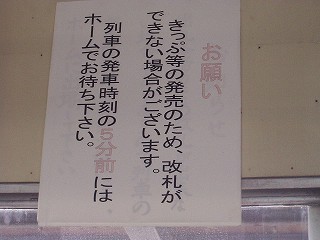 お願い
きっぷ等の発売のため、改札が
できない場合がございます。
列車の発車時刻の５分前には
ホームでお待ち下さい。